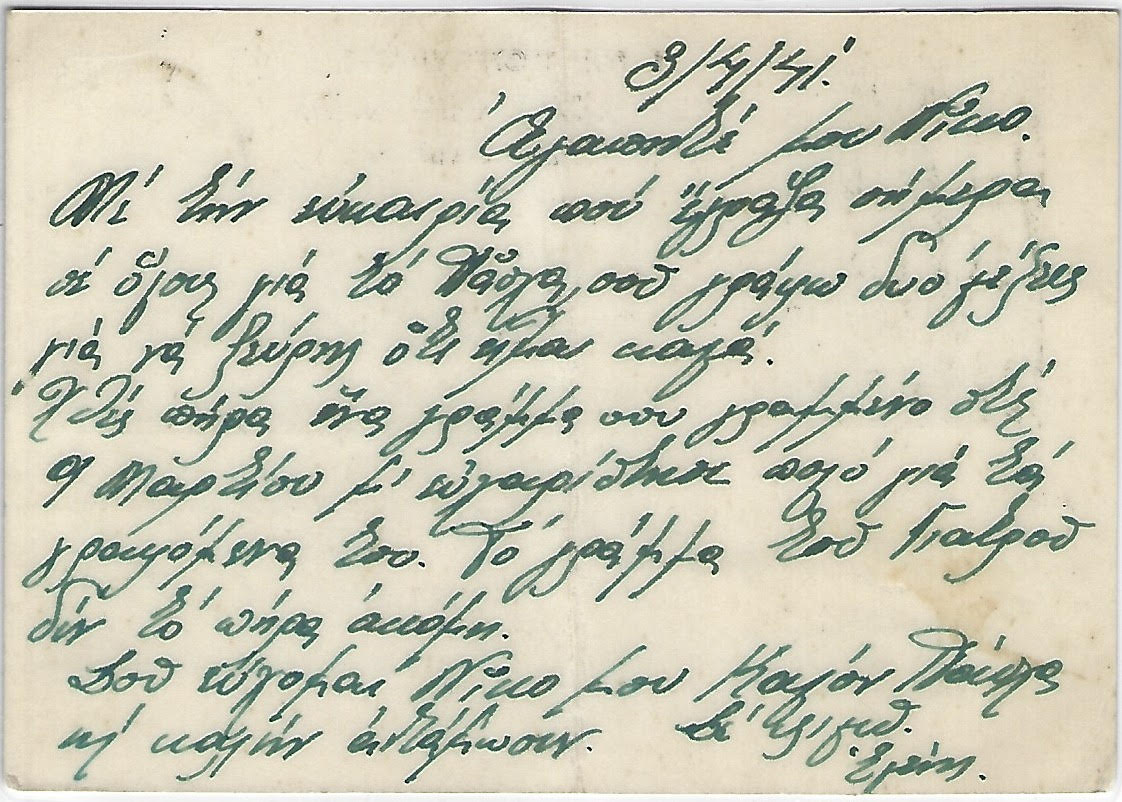 3/4/41.
Ἀγαπητέ μου Νῖκο.
Μέ τήν εὐκαιρία πού ἔγραψα σήμερα
σέ ὅλους γιά τό Πάσχα, σοῦ γράφω δυό λέξεις
γιά νά ξεύρης ὅτι εἶμαι καλά.
Χθές πῆρα ἕνα γράμμα σου γραμμένο στίς
9 Μαρτίου μ' εὐχαρίστησε πολύ γιά τά
γραφόμενά του. Τό γράμμα τοῦ Γιατροῦ
δέν τό πῆρα ἀκόμη.
Σοῦ εὔχομαι Νῖκο μου Καλόν Πάσχα
κί καλήν ἀντάμωσιν. Σέ φιλῶ.
Ἑλένη.